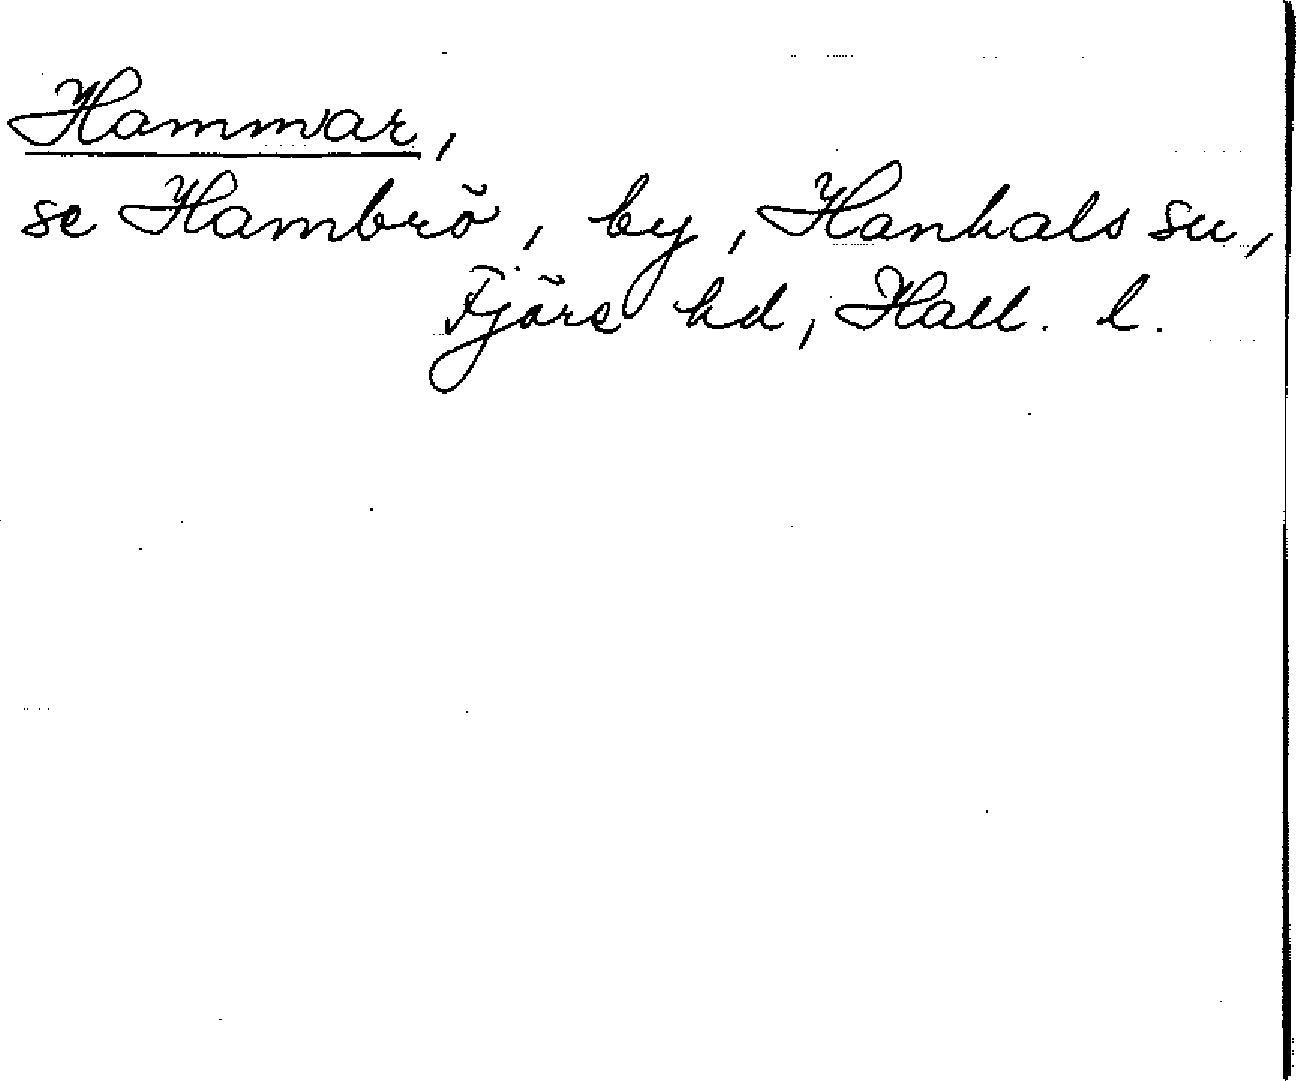 Hammar,
se Hambrö, by, Hanhals sn,
Fjäre hd, Hall. l.